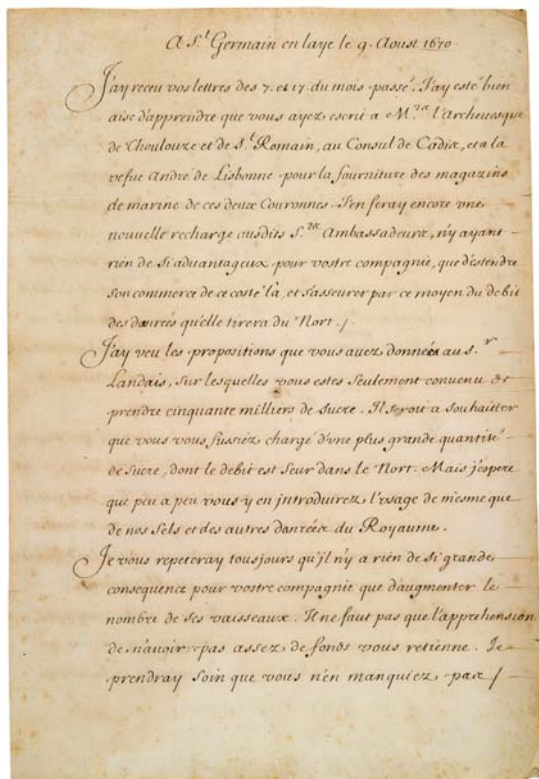 A S.t Germain en laye le 9. Aoust 1670
J'ay receu vos lettres des 7. et 17. du mois passé. J'ay esté bien
aise d'apprendre que vous ayez escrit a M.rs l'Archeuesque
de Thoulouze et de S.t Romain, au Consul de Cadix, et a la
vefue André de Lisbonne pour la fourniture des magazins
de marine de ces deux Couronnes. J'en feray encore vne
nouuelle recharge ausdits S.rs Ambassadeurs, n'y ayant
rien de si aduantageux pour vostre compagnie, que d'estendre
son commerce de ce costé là, et s'asseurer par ce moyen du debit
des danrées qu'elle tirera du Nort. /
J'ay veu les propositions que vous auez données au s.r
Landais, sur lesquelles vous estes seulement conuenu de
prendre cinquante milliers de sucre. Il seroit a souhaitter
que vous vous fussiez chargé d'vne plus grande quantité
de sucre, dont le debit est seur dans le Nort. Mais j'espere
que peu a peu vous y en introduirez l'vsage de mesme que
de nos sels et des autres danrées du Royaume.
Je vous repeteray tousjours qu'il n'y a rien de si grande
consequence pour vostre compagnie que d'augmenter le
nombre de ses vaisseaux. Il ne faut pas que l'apprehension
de n'auoir pas assez de fonds vous retienne. Je
prendray soin que vous n'en manquiez pas /